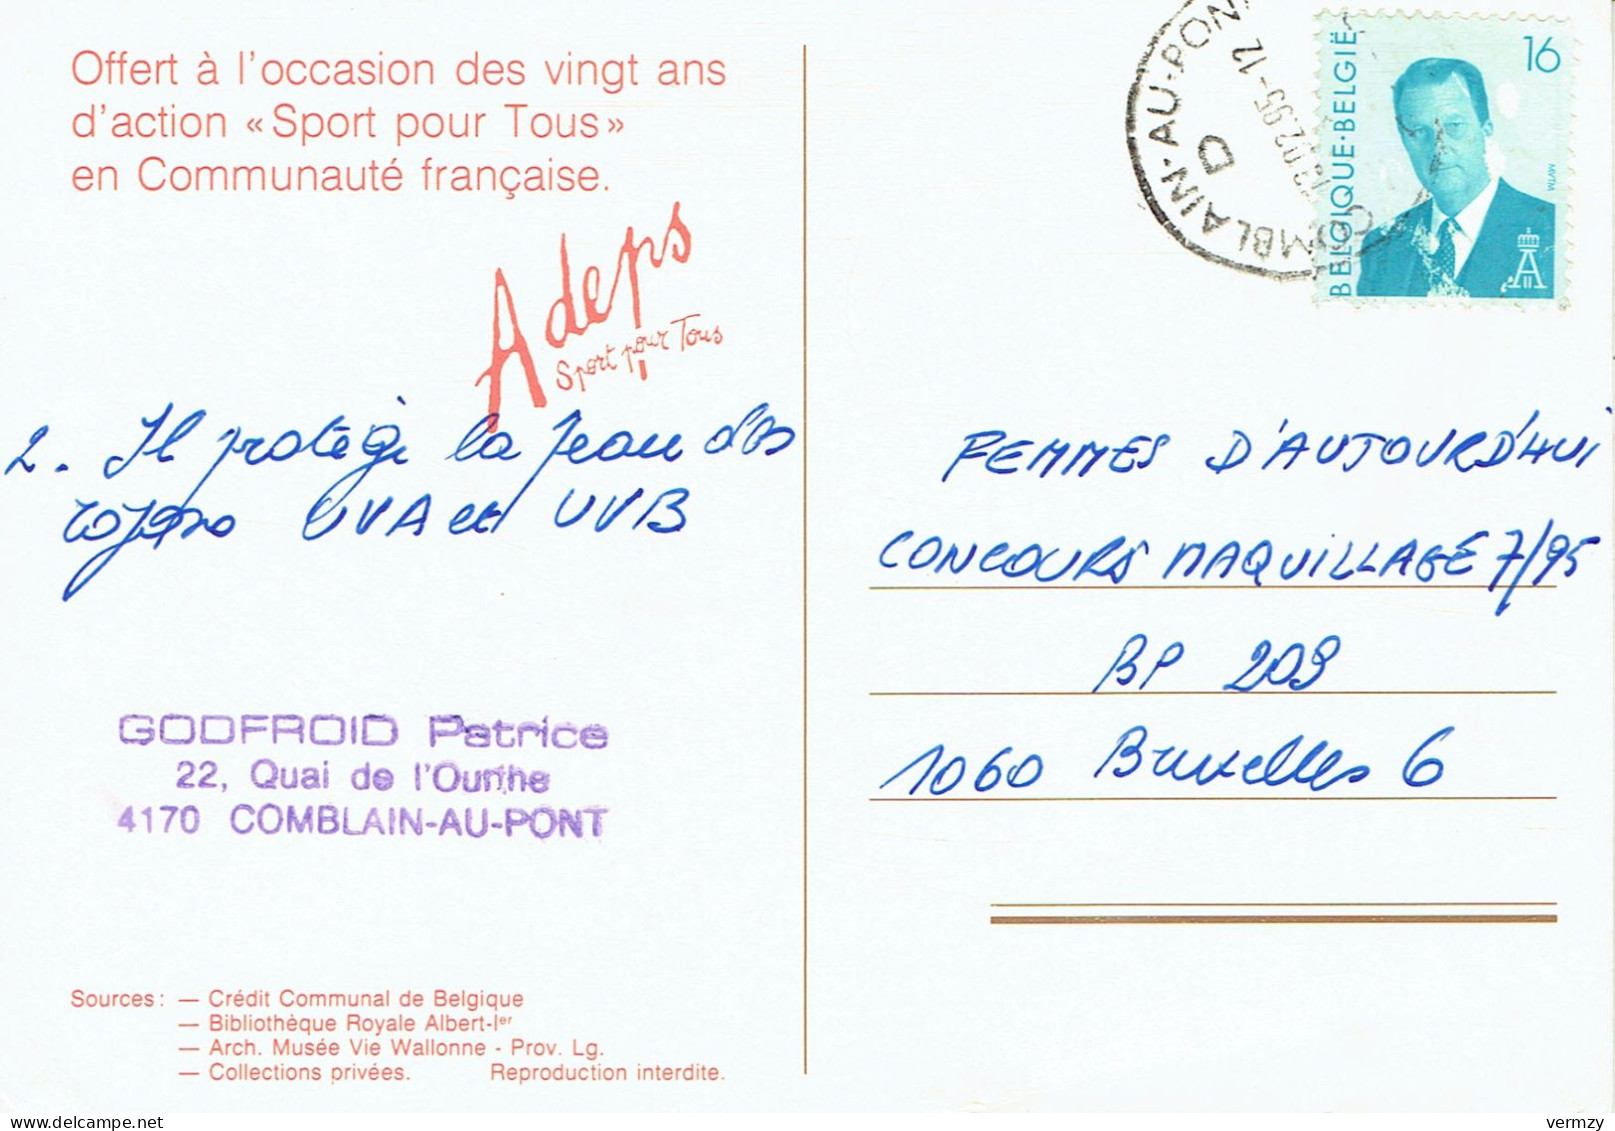 Offert à l'occasion des vingt ans
d'action «Sport pour Tous»
en Communauté française.
Adeps
Sport pour Tous
2. Il protège la peau des
rayons UVA et UVB
GODFROID Patrice
22, Quai de l'Ourthe
4170 COMBLAIN-AU-PONT
Sources : — Crédit Communal de Belgique
— Bibliothèque Royale Albert-Ier
— Arch. Musée Vie Wallonne - Prov. Lg.
— Collections privées. Reproduction interdite.
COMBLAIN-AU-PONT
D
13.02.95-12
BELGIQUE·BELGIË
16
MVTM
FEMMES D'AUJOURD'HUI
CONCOURS MAQUILLAGE 7/95
BP 209
1060 Bruxelles 6
vermzy